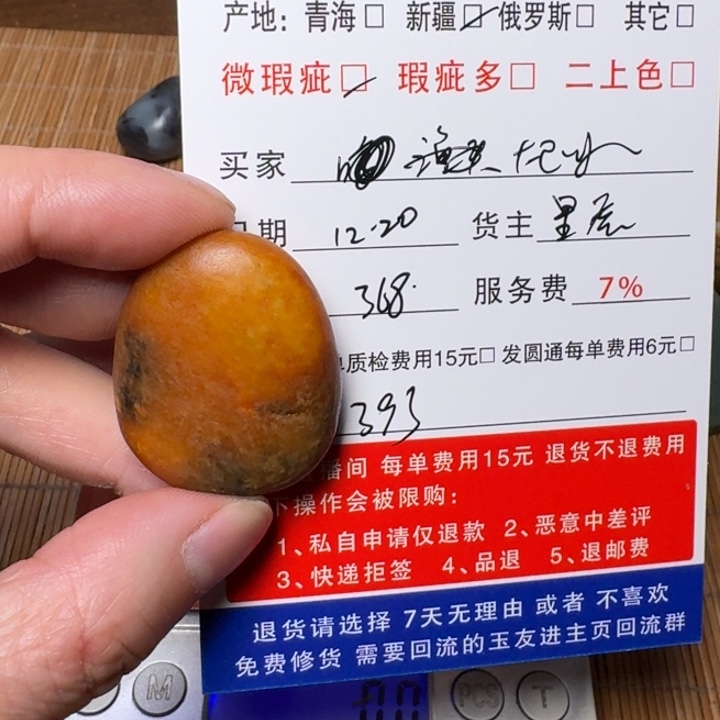 产地: 青海□ 新疆☑ 俄罗斯□ 其它□
微瑕疵☑ 瑕疵多□ 二上色□
买家
日期 12.20 货主 星辰
368. 服务费 7%
质检费用15元□ 发圆通每单费用6元□
393
播间 每单费用15元 退货不退费用
下操作会被限购:
1、私自申请仅退款 2、恶意中差评
3、快递拒签 4、品退 5、退邮费
退货请选择 7天无理由 或者 不喜欢
免费修货 需要回流的玉友进主页回流群
M PCS T